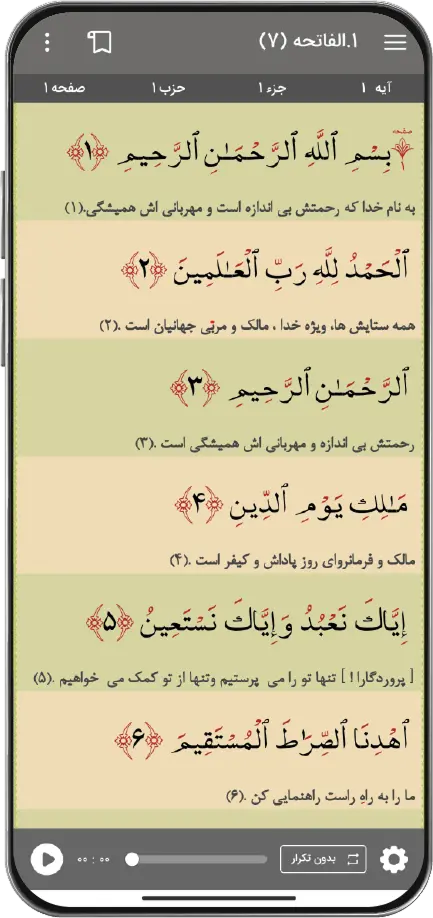 ۱.الفاتحه (۷)
آیه ۱ جزء ۱ حزب ۱ صفحه ۱
صفحه
بِسْمِ ٱللَّهِ ٱلرَّحْمَـٰنِ ٱلرَّحِيمِ ﴿۱﴾
به نام خدا که رحمتش بی اندازه است و مهربانی اش همیشگی.(۱)
ٱلْحَمْدُ لِلَّهِ رَبِّ ٱلْعَـٰلَمِينَ ﴿۲﴾
همه ستایش ها، ویژه خدا ، مالک و مربّی جهانیان است .(۲)
ٱلرَّحْمَـٰنِ ٱلرَّحِيمِ ﴿۳﴾
رحمتش بی اندازه و مهربانی اش همیشگی است .(۳)
مَـٰلِكِ يَوْمِ ٱلدِّينِ ﴿۴﴾
مالک و فرمانروای روز پاداش و کیفر است .(۴)
إِيَّاكَ نَعْبُدُ وَإِيَّاكَ نَسْتَعِينُ ﴿۵﴾
[ پروردگارا ! ] تنها تو را می پرستیم وتنها از تو کمک می خواهیم .(۵)
ٱهْدِنَا ٱلصِّرَٰطَ ٱلْمُسْتَقِيمَ ﴿۶﴾
ما را به راهِ راست راهنمایی کن .(۶)
بدون تکرار ۰۰ : ۰۰